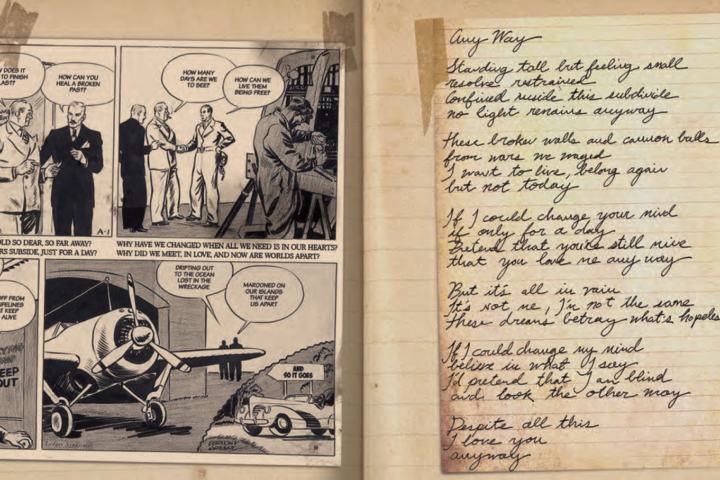 DOES IT
TO FINISH
LAST?
HOW CAN YOU
HEAL A BROKEN
PAST?
A-1
HOW MANY
DAYS ARE WE
TO SEE?
HOW CAN WE
LIVE THEM
BEING FREE?
OLD SO DEAR, SO FAR AWAY?
RS SUBSIDE, JUST FOR A DAY?
WHY HAVE WE CHANGED WHEN ALL WE NEED IS IN OUR HEARTS?
WHY DID WE MEET, IN LOVE, AND NOW ARE WORLDS APART?
OFF FROM
IFELINES
T KEEP
ALIVE
KEEP
OUT
DRIFTING OUT
TO THE OCEAN
LOST IN THE
WRECKAGE
MAROONED ON
OUR ISLANDS
THAT KEEP
US APART
AND
SO IT GOES
Any Way
Standing tall but feeling small
resolve restrained
Confined inside this subdivide
no light remains anyway
These broken walls and cannon balls
from wars we waged
I want to live, belong again
but not today
If I could change your mind
if only for a day
Pretend that you're still mine
that you love me any way
But it's all in vain
It's not me, I'm not the same
These dreams betray what's hopeles
If I could change my mind
believe in what I say
I'd pretend that I am blind
and look the other way
Despite all this
I love you
anyway